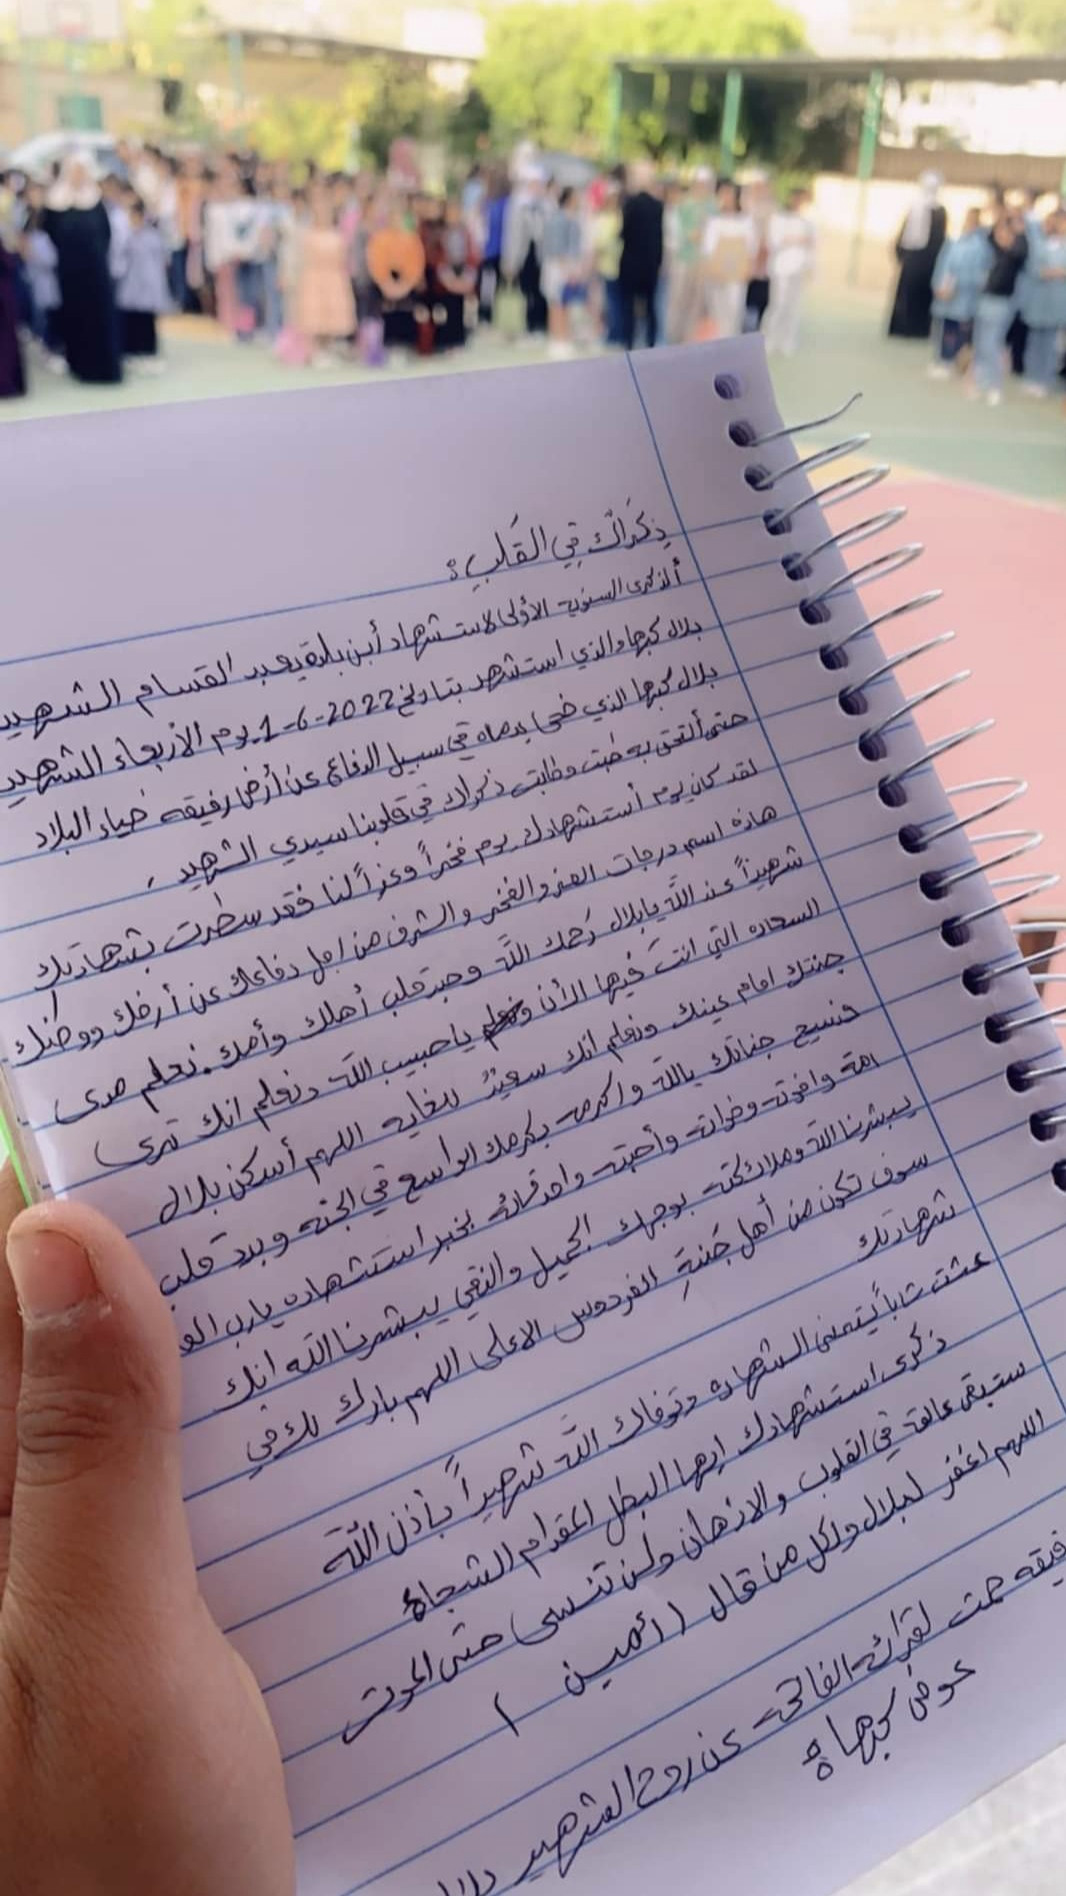 ذِكَراكَ فِي القَلبِ :
ألذكرى السنوية الأولى لاستشهاد أبن بلدة يعبد القسام الشهيد
بلال كبها والذي استشهد بتاريخ 2022-6-1 يوم الأربعاء الشهيد
بلال كبها الذي ضحى بدماه في سبيل الدفاع عن أرض رفيقه ضياء البلاد
حتى ألتحق به طبت وطابت ذكراك في قلوبنا سيدي الشهيد ،
لقد كان يوم أستشهادك يوم فخراً وعزاً لنا فقد سطرت بشهادتك
هاذه اسم درجات العز والفخر والشرف من اجل دفاعك عن أرضك ووطنك
شهيداً عند اللّه يا بلال رَحمك اللّه وجبر قلب أهلك وأمك . نعلم مدى
السعاده التي انتَ فيها الأن يا حبيب اللّه ونعلم انك ترى
جنتك امام عينك ونعلم انك سعيدٌ للغايه اللهم أسكن بلال
فسيح جناتك يالله واكرمه بكرمك الواسع في الجنه وبرد قلب
امه واخوته وخواته وأحبته واصدقائه بخبر استشهاده يارب
يبشرنا اللّه وملائكته بوجهك الجميل والنقي يبشرنا اللّه انك
سوف تكون من أهل جَنةِ الفردوس الاعلى اللهم بارك لك في
شهادتك
عشت شاباً يتمنى الشهاده وتوفاك اللّه شهيداً بأذن اللّه
ذكرى استشهادك ايها البطل المقدام الشجاع
ستبقى عالقه في القلوب والاذهان ولن تنسى حتى الموت
اللهم اغفر لبلال ولكل من قال ( أمين )
دقيقه صمت لقرائه الفاتحه عن روح الشهيد بلال
عوض كبها